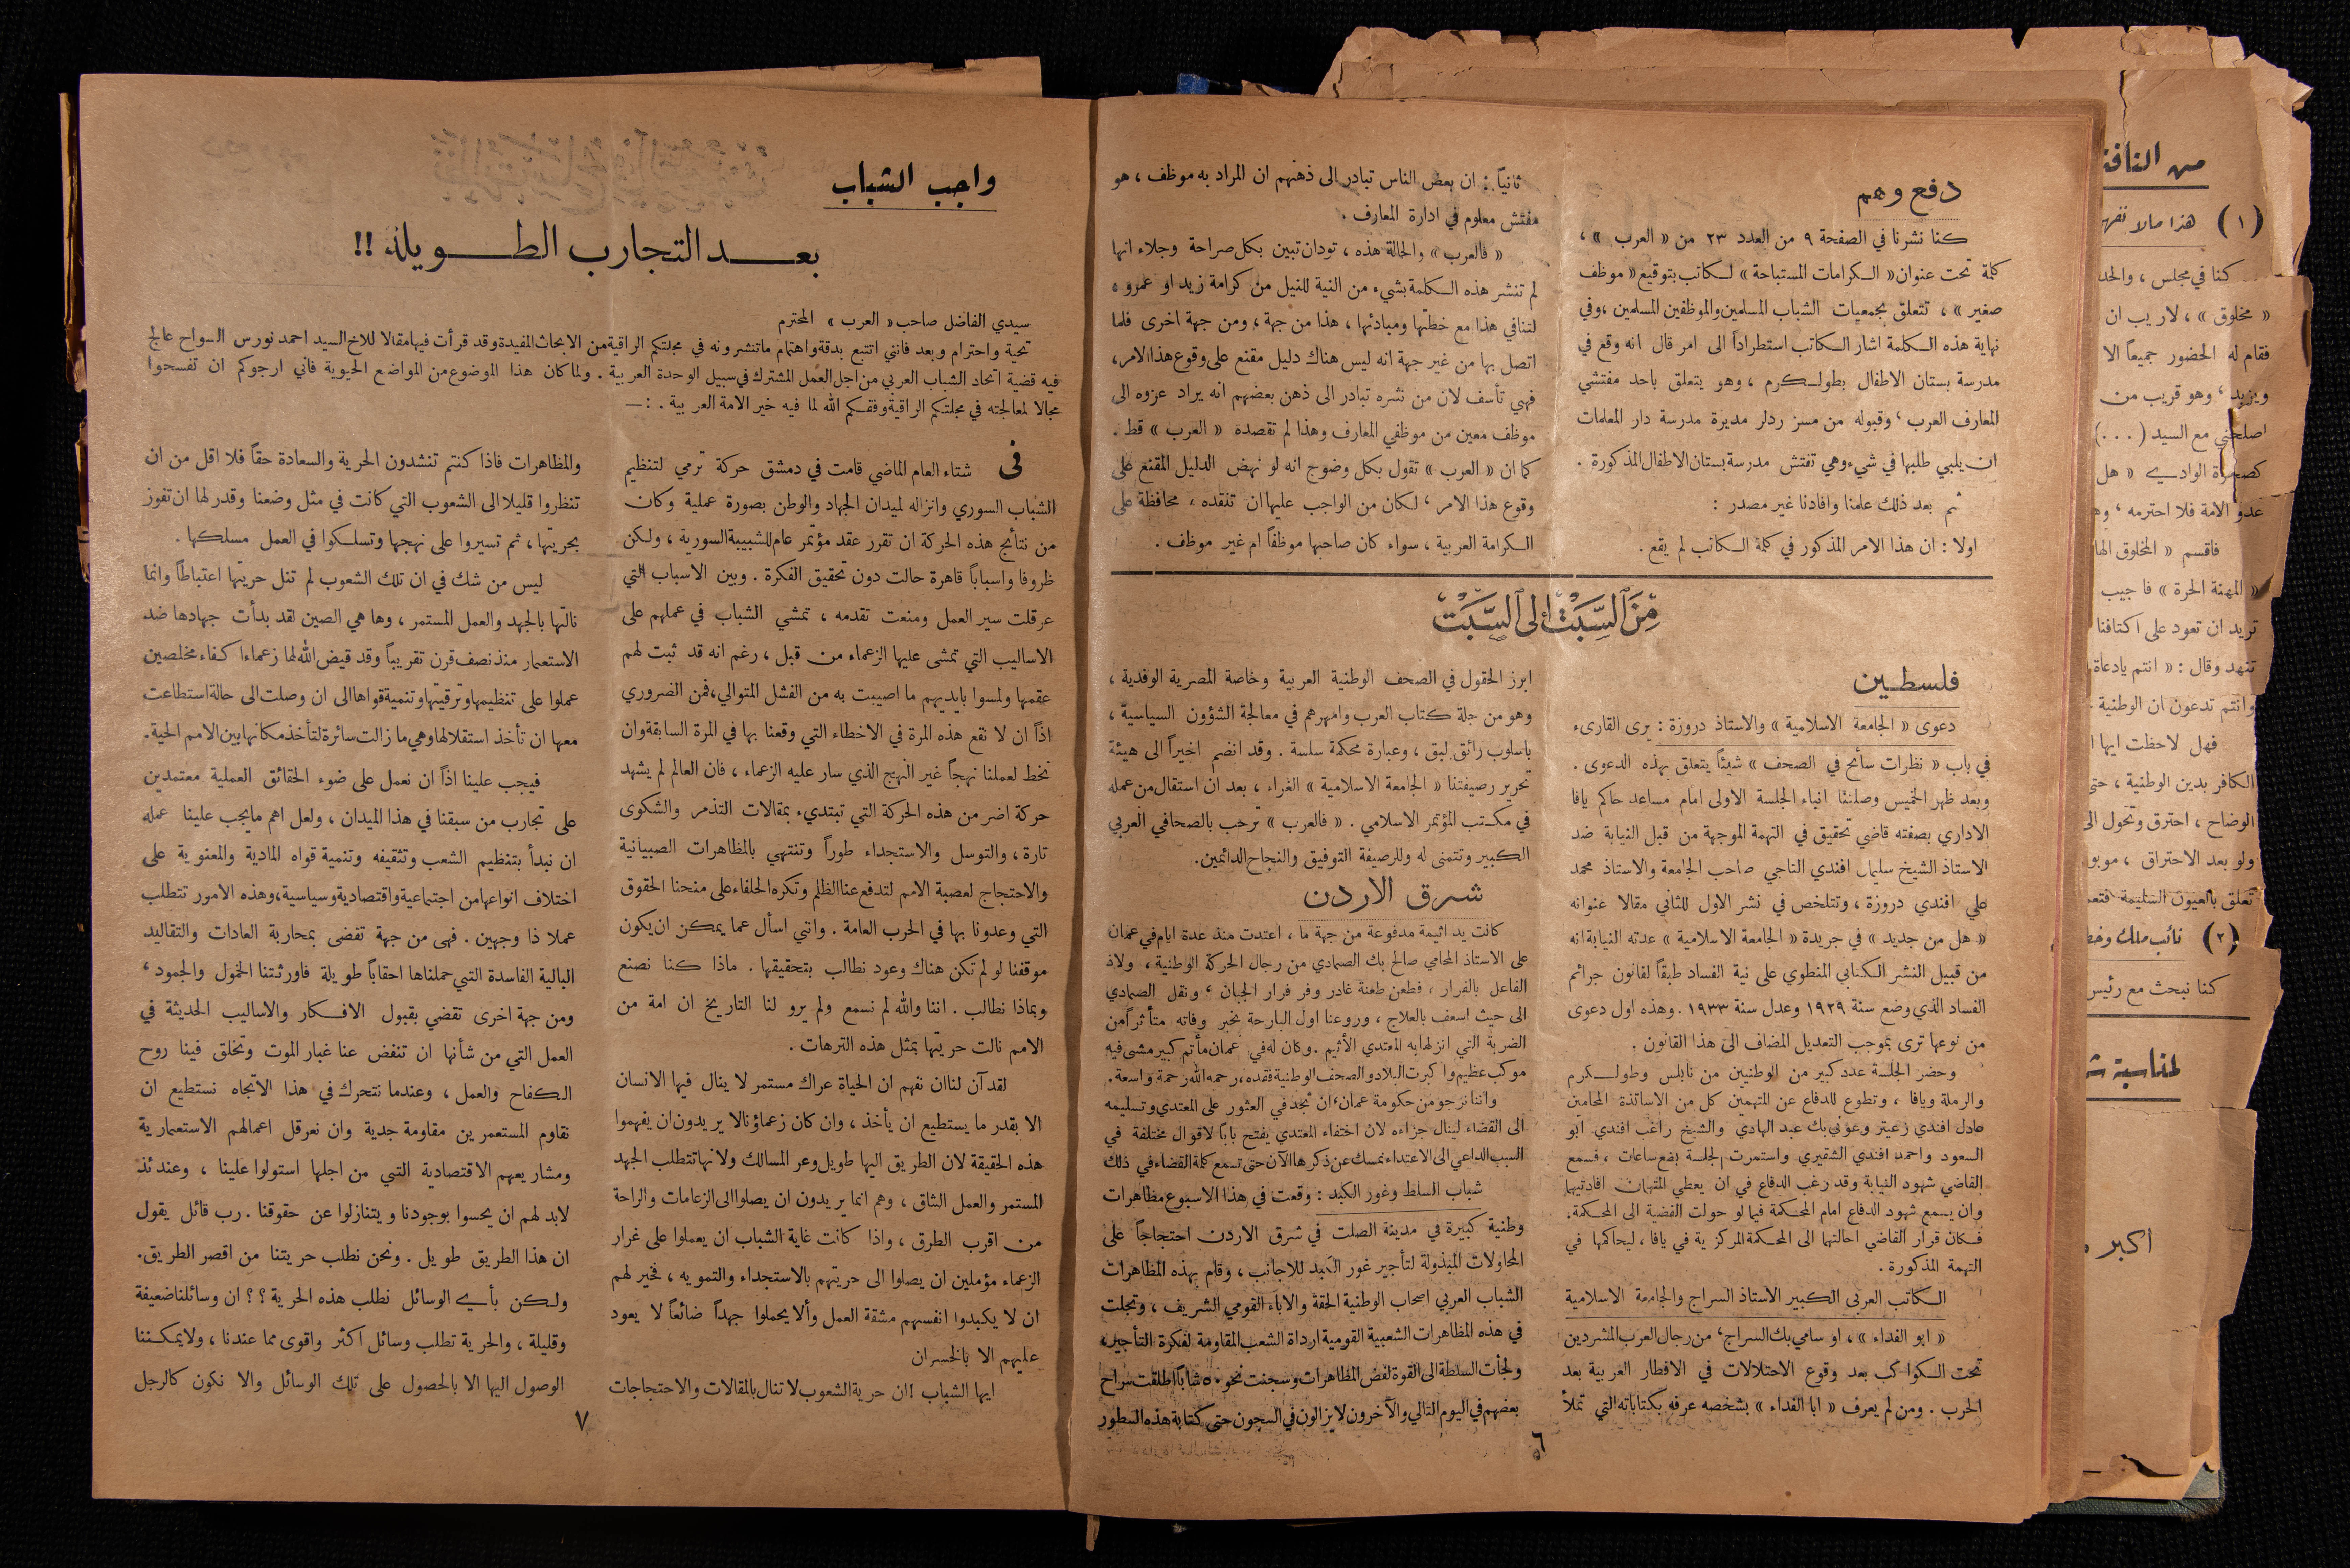 دفع وهم
كنا نشرنا في الصفحة ٩ من العدد ٢٣ من « العرب » ،
كلمة تحت عنوان « الكرامات المستباحة » لكاتب بتوقيع « موظف
صغير » ، تتعلق بجمعيات الشباب المسلمين والموظفين المسلمين ، وفي
نهاية هذه الكلمة اشار الكاتب استطراداً الى امر قال انه وقع في
مدرسة بستان الاطفال بطولكرم ، وهو يتعلق باحد مفتشي
المعارف العرب ، وقبوله من مسز ردلر مديرة مدرسة دار المعلمات
ان يلبي طلبها في شيء وهي تفتش مدرسة بستان الاطفال المذكورة .
ثم بعد ذلك علمنا وافادنا غير مصدر :
اولا : ان هذا الامر المذكور في كلمة الكاتب لم يقع .
ثانياً : ان بعض الناس تبادر الى ذهنهم ان المراد به موظف ، هو
مفتش معلوم في ادارة المعارف .
« فالعرب » والحالة هذه ، تود ان تبين بكل صراحة وجلاء انها
لم تنشر هذه الكلمة بشيء من النية للنيل من كرامة زيد او عمرو ه
لتنافي هذا مع خطتها ومبادئها ، هذا من جهة ، ومن جهة اخرى فلما
اتصل بها من غير جهة انه ليس هناك دليل مقنع على وقوع هذا الامر ،
فهي تأسف لان من نشره تبادر الى ذهن بعضهم انه يراد عزوه الى
موظف معين من موظفي المعارف وهذا لم تقصده « العرب » قط .
كما ان « العرب » تقول بكل وضوح انه لو نهض الدليل المقنع على
وقوع هذا الامر ، لكان من الواجب عليها ان تنقده ، محافظة على
الكرامة العربية ، سواء كان صاحبها موظفاً ام غير موظف .
مِنَ السَّبْت إلى السَّبْت
فلسطين
دعوى « الجامعة الاسلامية » والاستاذ دروزة : يرى القارىء
في باب « نظرات سائح في الصحف » شيئاً يتعلق بهذه الدعوى .
وبعد ظهر الخميس وصلتنا انباء الجلسة الاولى امام مساعد حاكم يافا
الاداري بصفته قاضي تحقيق في التهمة الموجهة من قبل النيابة ضد
الاستاذ الشيخ سليمان افندي التاجي صاحب الجامعة والاستاذ محمد
علي افندي دروزة ، وتتلخص في نشر الاول للثاني مقالا عنوانه
« هل من جديد » في جريدة « الجامعة الاسلامية » عدته النيابة انه
من قبيل النشر الكتابي المنطوي على نية الفساد طبقاً لقانون جرائم
الفساد الذي وضع سنة ١٩٢٩ وعدل سنة ١٩٣٣ . وهذه اول دعوى
من نوعها ترى بموجب التعديل المضاف الى هذا القانون .
وحضر الجلسة عدد كبير من الوطنيين من نابلس وطولكرم
والرملة ويافا ، وتطوع للدفاع عن المتهمين كل من الاساتذة المحامين
عادل افندي زعيتر وعوني بك عبد الهادي والشيخ راغب افندي ابو
السعود واحمد افندي الشقيري واستمرت الجلسة بضع ساعات ، فسمع
القاضي شهود النيابة وقد رغب الدفاع في ان يعطي المتهمان افادتيهما
وان يسمع شهود الدفاع امام المحكمة فيما لو حولت القضية الى المحكمة .
فكان قرار القاضي احالتهما الى المحكمة المركزية في يافا ، ليحاكما في
التهمة المذكورة .
الكاتب العربي الكبير الاستاذ السراج والجامعة الاسلامية
« ابو الفداء » ، او سامي بك السراج ، من رجال العرب المشردين
تحت الكواكب بعد وقوع الاحتلالات في الاقطار العربية بعد
الحرب . ومن لم يعرف « ابا الفداء » بشخصه عرفه بكتاباته التي تملأ
ابرز الحقول في الصحف الوطنية العربية وخاصة المصرية الوفدية ،
وهو من جلة كتاب العرب وامهرهم في معالجة الشؤون السياسية ،
باسلوب رائق لبق ، وعبارة محكمة سلسة . وقد انضم اخيراً الى هيئة
تحرير رصيفتنا « الجامعة الاسلامية » الغراء ، بعد ان استقال من عمله
في مكتب المؤتمر الاسلامي . « فالعرب » ترحب بالصحافي العربي
الكبير وتتمنى له وللرصيفة التوفيق والنجاح الدائمين .
شرق الاردن
كانت يد اثيمة مدفوعة من جهة ما ، اعتدت منذ عدة ايام في عمان
على الاستاذ المحامي صالح بك الصمادي من رجال الحركة الوطنية ، ولاذ
الفاعل بالفرار ، فطعن طعنة غادر وفر فرار الجبان ، ونقل الصمادي
الى حيث اسعف بالعلاج ، وروعنا اول البارحة بخبر وفاته متأثراً من
الضربة التي انزلها به المعتدي الأثيم . وكان له في عمان مأتم كبير مشى فيه
موكب عظيم واكبرت البلاد والصحف الوطنية فقده ، رحمه الله رحمة واسعة .
واننا نرجو من حكومة عمان ، ان تجد في العثور على المعتدي وتسليمه
الى القضاء لينال جزاءه لان اختفاء المعتدي يفتح باباً لاقوال مختلفة في
السبب الداعي الى الاعتداء نمسك عن ذكرها الآن حتى تسمع كلمة القضاء في ذلك
شباب السلط وغور الكبد : وقعت في هذا الاسبوع مظاهرات
وطنية كبيرة في مدينة الصلت في شرق الاردن احتجاجاً على
المحاولات المبذولة لتأجير غور الكبد للاجانب ، وقام بهذه المظاهرات
الشباب العربي اصحاب الوطنية الحقة والاباء القومي الشريف ، وتجلت
في هذه المظاهرات الشعبية القومية ارداة الشعب المقاومة لفكرة التأجير
ولجأت السلطة الى القوة لفض المظاهرات وسجنت نحو ٥٠ شاباً اطلقت سراح
بعضهم في اليوم التالي والآخرون لا يزالون في السجون حتى كتابة هذه السطور
٦
واجب الشباب
بعد التجارب الطويلة !!
سيدي الفاضل صاحب « العرب » المحترم
تحية واحترام وبعد فانني اتتبع بدقة واهتمام ما تنشرونه في مجلتكم الراقية من الابحاث المفيدة وقد قرأت فيها مقالا للاخ السيد احمد نورس السواح عالج
فيه قضية اتحاد الشباب العربي من اجل العمل المشترك في سبيل الوحدة العربية . ولما كان هذا الموضوع من المواضع الحيوية فاني ارجوكم ان تفسحوا
مجالا لمعالجته في مجلتكم الراقية وفقكم الله لما فيه خير الامة العربية . : —
في شتاء العام الماضي قامت في دمشق حركة ترمي لتنظيم
الشباب السوري وانزاله لميدان الجهاد والوطن بصورة عملية وكان
من نتائج هذه الحركة ان تقرر عقد مؤتمر عام للشبيبة السورية ، ولكن
ظروفا واسباباً قاهرة حالت دون تحقيق الفكرة . وبين الاسباب التي
عرقلت سير العمل ومنعت تقدمه ، تمشي الشباب في عملهم على
الاساليب التي تمشى عليها الزعماء من قبل ، رغم انه قد ثبت لهم
عقمها ولمسوا بايديهم ما اصيبت به من الفشل المتوالي ، فمن الضروري
اذاً ان لا نقع هذه المرة في الاخطاء التي وقعنا بها في المرة السابقة وان
نخط لعملنا نهجاً غير النهج الذي سار عليه الزعماء ، فان العالم لم يشهد
حركة اضر من هذه الحركة التي تبتديء بمقالات التذمر والشكوى
تارة ، والتوسل والاستجداء طوراً وتنتهي بالمظاهرات الصبيانية
والاحتجاج لعصبة الامم لتدفع عنا الظلم وتكره الحلفاء على منحنا الحقوق
التي وعدونا بها في الحرب العامة . وانني اسأل عما يمكن ان يكون
موقفنا لو لم تكن هناك وعود نطالب بتحقيقها . ماذا كنا نصنع
وبماذا نطالب . اننا والله لم نسمع ولم يرو لنا التاريخ ان امة من
الامم نالت حريتها بمثل هذه الترهات .
لقد آن لنا ان نفهم ان الحياة عراك مستمر لا ينال فيها الانسان
الا بقدر ما يستطيع ان يأخذ ، وان كان زعماؤنا لا يريدون ان يفهموا
هذه الحقيقة لان الطريق اليها طويل وعر المسالك ولانها تتطلب الجهد
المستمر والعمل الشاق ، وهم انما يريدون ان يصلوا الى الزعامات والراحة
من اقرب الطرق ، واذا كانت غاية الشباب ان يعملوا على غرار
الزعماء مؤملين ان يصلوا الى حريتهم بالاستجداء والتمويه ، فخير لهم
ان لا يكبدوا انفسهم مشقة العمل وألا يحملوا جهداً ضائعاً لا يعود
عليهم الا بالخسران
ايها الشباب ! ان حرية الشعوب لا تنال بالمقالات والاحتجاجات
والمظاهرات فاذا كنتم تنشدون الحرية والسعادة حقاً فلا اقل من ان
تنظروا قليلا الى الشعوب التي كانت في مثل وضعنا وقدر لها ان تفوز
بحريتها ، ثم تسيروا على نهجها وتسلكوا في العمل مسلكها .
ليس من شك في ان تلك الشعوب لم تنل حريتها اعتباطاً وانما
نالتها بالجهد والعمل المستمر ، وها هي الصين لقد بدأت جهادها ضد
الاستعمار منذ نصف قرن تقريباً وقد قيض الله لها زعماء اكفاء مخلصين
عملوا على تنظيمها وترقيتها وتنمية قواها الى ان وصلت الى حالة استطاعت
معها ان تأخذ استقلالها وهي ما زالت سائرة لتأخذ مكانها بين الامم الحية .
فيجب علينا اذاً ان نعمل على ضوء الحقائق العملية معتمدين
على تجارب من سبقنا في هذا الميدان ، ولعل اهم ما يجب علينا عمله
ان نبدأ بتنظيم الشعب وتثقيفه وتنمية قواه المادية والمعنوية على
اختلاف انواعها من اجتماعية واقتصادية وسياسية ، وهذه الامور تتطلب
عملا ذا وجهين . فهي من جهة تقضى بمحاربة العادات والتقاليد
البالية الفاسدة التي حملناها احقاباً طويلة فاورثتنا الخمول والجمود ،
ومن جهة اخرى تقضي بقبول الافكار والاساليب الحديثة في
العمل التي من شأنها ان تنفض عنا غبار الموت وتخلق فينا روح
الكفاح والعمل ، وعندما نتحرك في هذا الاتجاه نستطيع ان
نقاوم المستعمرين مقاومة جدية وان نعرقل اعمالهم الاستعمارية
ومشاريعهم الاقتصادية التي من اجلها استولوا علينا ، وعندئذ
لابد لهم ان يحسوا بوجودنا ويتنازلوا عن حقوقنا . رب قائل يقول
ان هذا الطريق طويل . ونحن نطلب حريتنا من اقصر الطريق .
ولكن بأي الوسائل نطلب هذه الحرية ؟ ؟ ان وسائلنا ضعيفة
وقليلة ، والحرية تطلب وسائل اكثر واقوى مما عندنا ، ولا يمكننا
الوصول اليها الا بالحصول على تلك الوسائل والا نكون كالرجل
٧
من النافذ
( ١ ) هذا مالا نفهم
كنا في مجلس ، والحد
« مخلوق » ، لاريب ان
فقام له الحضور جميعاً الا
ويزيد ، وهو قريب من
اصلحني مع السيد ( . . . )
كصخرة الوادي « هل
عدو الامة فلا احترمه ، وه
فاقسم « المخلوق الها
« المهنة الحرة » فاجيب
تريد ان تعود على اكتافنا
تنهد وقال : « انتم يادعاة
وانتم تدعون ان الوطنية
فهل لاحظت ايها ا
الكافر بدين الوطنية ، حتى
الوضاح ، احترق وتحول الى
ولو بعد الاحتراق ، موبو
تعلق بالعيون السليمة فتعم
( ٢ ) نائب ملك وخم
كنا نبحث مع رئيس
لمناسبة ش
اكبر